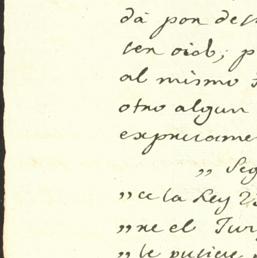 dá por de
ten oido; p
al mismo
otro algun
expresame
„ Seg
„ ce la Ley
„ ne el Jur
„ le pusiere